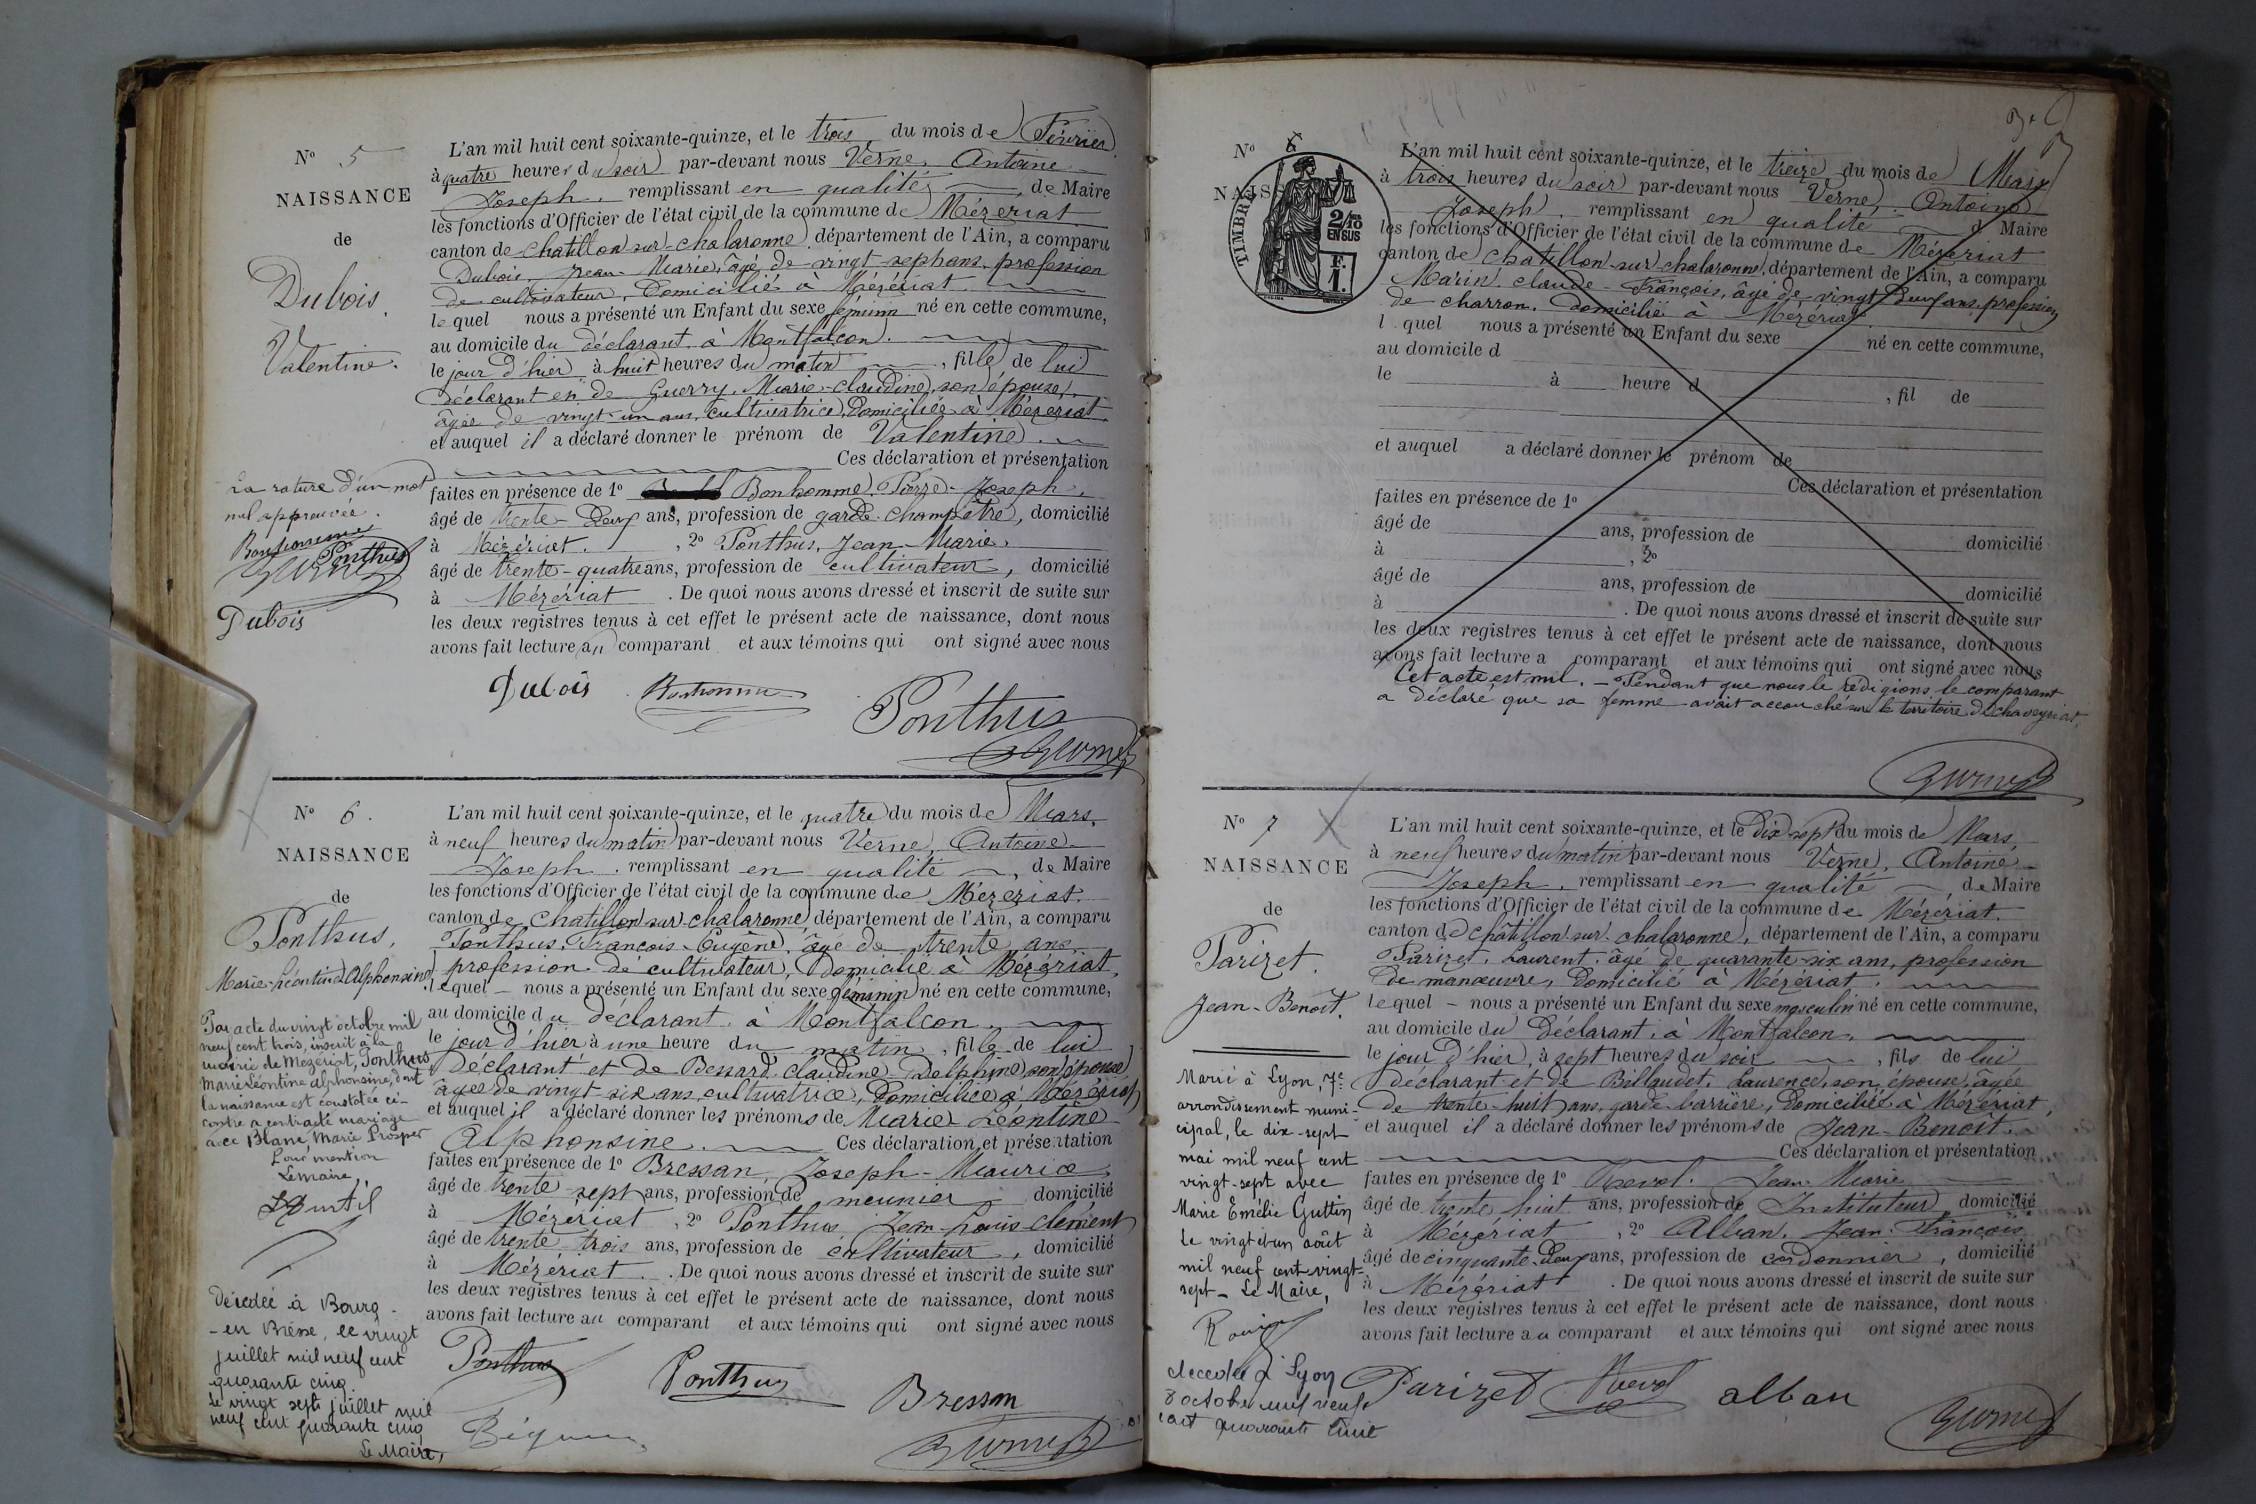 N° 5
NAISSANCE
de
Dubois.
Valentine.
L'an mil huit cent soixante-quinze, et le trois du mois de Février
à quatre heures du soir par-devant nous Verne, Antoine
Joseph, remplissant en qualité de Maire
les fonctions d'Officier de l'état civil de la commune de Mézeriat
canton de Chatillon-sur-chalaronne, département de l'Ain, a comparu
Dubois, Jean-Marie, âgé de vingt-sept ans, profession
de cultivateur, Domicilié à Mézériat
lequel nous a présenté un Enfant du sexe féminin né en cette commune,
au domicile du déclarant à Montfalcon.
le jour d'hier à huit heures du matin, fille de lui
déclarant et de Guerry, Marie-claudine, son épouse,
âgée de vingt-un ans, cultivatrice, Domiciliée à Mézeriat
et auquel il a déclaré donner le prénom de Valentine.
Ces déclaration et présentation
faites en présence de 1° Bonhomme, Pierre-Joseph,
âgé de trente-deux ans, profession de garde-champêtre, domicilié
à Mézériat, 2° Ponthus, Jean-Marie,
âgé de trente-quatre ans, profession de cultivateur, domicilié
à Mézeriat. De quoi nous avons dressé et inscrit de suite sur
les deux registres tenus à cet effet le présent acte de naissance, dont nous
avons fait lecture au comparant et aux témoins qui ont signé avec nous
La rature d'un mot
nul approuvée.
Bonhomme
Ponthus
Dubois
Dubois Bonhomme
Ponthus
N° 6.
NAISSANCE
de
Ponthus,
Marie-Léontine Alphonsine
L'an mil huit cent soixante-quinze, et le quatre du mois de Mars,
à neuf heures du matin par-devant nous Verne, Antoine
Joseph, remplissant en qualité, de Maire
les fonctions d'Officier de l'état civil de la commune de Mézeriat.
canton de Chatillon-sur-chalaronne, département de l'Ain, a comparu
Ponthus, François-Eugène, âgé de trente ans,
profession de cultivateur, Domicilié à Mézériat,
lequel nous a présenté un Enfant du sexe féminin né en cette commune,
au domicile du déclarant à Montfalcon.
le jour d'hier à une heure du matin, fille de lui
Déclarant et de Bessard, claudine Delphine, son épouse
âgée de vingt six ans, cultivatrice, Domiciliée à Mézériat
et auquel il a déclaré donner les prénoms de Marie Léontine
Alphonsine. Ces déclaration et présentation
faites en présence de 1° Bressan, Joseph-Maurice,
âgé de trente-sept ans, profession de meunier, domicilié
à Mézériat, 2° Ponthus, Jean-Louis-clément
âgé de trente trois ans, profession de cultivateur, domicilié
à Mézeriat. De quoi nous avons dressé et inscrit de suite sur
les deux registres tenus à cet effet le présent acte de naissance, dont nous
avons fait lecture au comparant et aux témoins qui ont signé avec nous
Par acte du vingt octobre mil
neuf cent trois, inscrit à la
mairie de Mézériat, Ponthus
Marie Léontine Alphonsine, dont
la naissance est constatée ci-
contre a contracté mariage
avec Blanc, Marie Prosper
Pour mention
Le maire,
Décédée à Bourg-
-en Bresse, le vingt
juillet mil neuf cent
quarante cinq.
Le vingt sept juillet mil
neuf cent quarante cinq
Le Maire,
Ponthus Ponthus Bressan
N° 6
NAISS
TIMBRE
2/10 EN SUS
F. 1.
L'an mil huit cent soixante-quinze, et le treize du mois de Mars
à trois heures du soir par-devant nous Verne, Antoine
Joseph, remplissant en qualité d Maire
les fonctions d'Officier de l'état civil de la commune de Mézériat
canton de Chatillon-sur-chalaronne, département de l'Ain, a comparu
Marin, claude-François, âgé de vingt Deux ans, profession
de charron, domicilié à Mézériat
l quel nous a présenté un Enfant du sexe né en cette commune,
au domicile d
le à heure d , fil de
et auquel a déclaré donner le prénom de
Ces déclaration et présentation
faites en présence de 1°
âgé de ans, profession de domicilié
à , 2°
âgé de ans, profession de domicilié
à . De quoi nous avons dressé et inscrit de suite sur
les deux registres tenus à cet effet le présent acte de naissance, dont nous
avons fait lecture a comparant et aux témoins qui ont signé avec nous
Cet acte est nul. - Pendant que nous le rédigions le comparant
a déclaré que sa femme avait accouché sur le territoire de chaveyriat.
N° 7
NAISSANCE
de
Parizet.
Jean-Benoît.
L'an mil huit cent soixante-quinze, et le Dix-sept du mois de Mars,
à neuf heures du matin par-devant nous Verne, Antoine
Joseph, remplissant en qualité, de Maire
les fonctions d'Officier de l'état civil de la commune de Mézériat.
canton de châtillon-sur-chalaronne, département de l'Ain, a comparu
Parizet, Laurent, âgé de quarante-six ans, profession
de manœuvre, Domicilié à Mézériat.
lequel - nous a présenté un Enfant du sexe masculin né en cette commune,
au domicile du Déclarant, à Montfalcon,
le jour d'hier, à sept heures du soir, fils de lui
déclarant et de Billaudet, Laurence, son épouse, âgée
de trente-huit ans, garde-barrière, Domiciliée à Mézériat,
et auquel il a déclaré donner les prénoms de Jean-Benoît.
Ces déclaration et présentation
faites en présence de 1° Revol, Jean-Marie
âgé de trente huit ans, profession de Instituteur, domicilié
à Mézériat, 2° Alban, Jean-François,
âgé de cinquante-deux ans, profession de cordonnier, domicilié
à Mézériat. De quoi nous avons dressé et inscrit de suite sur
les deux registres tenus à cet effet le présent acte de naissance, dont nous
avons fait lecture au comparant et aux témoins qui ont signé avec nous
Marié à Lyon, 7e
arrondissement muni-
cipal, le dix-sept
mai mil neuf cent
vingt-sept avec
Marie Emélie Guttin
Le vingt et un août
mil neuf cent vingt-
sept - Le Maire,
decedé à Lyon
8 octobre mil neuf
cent quarante
Parizet Revol alban